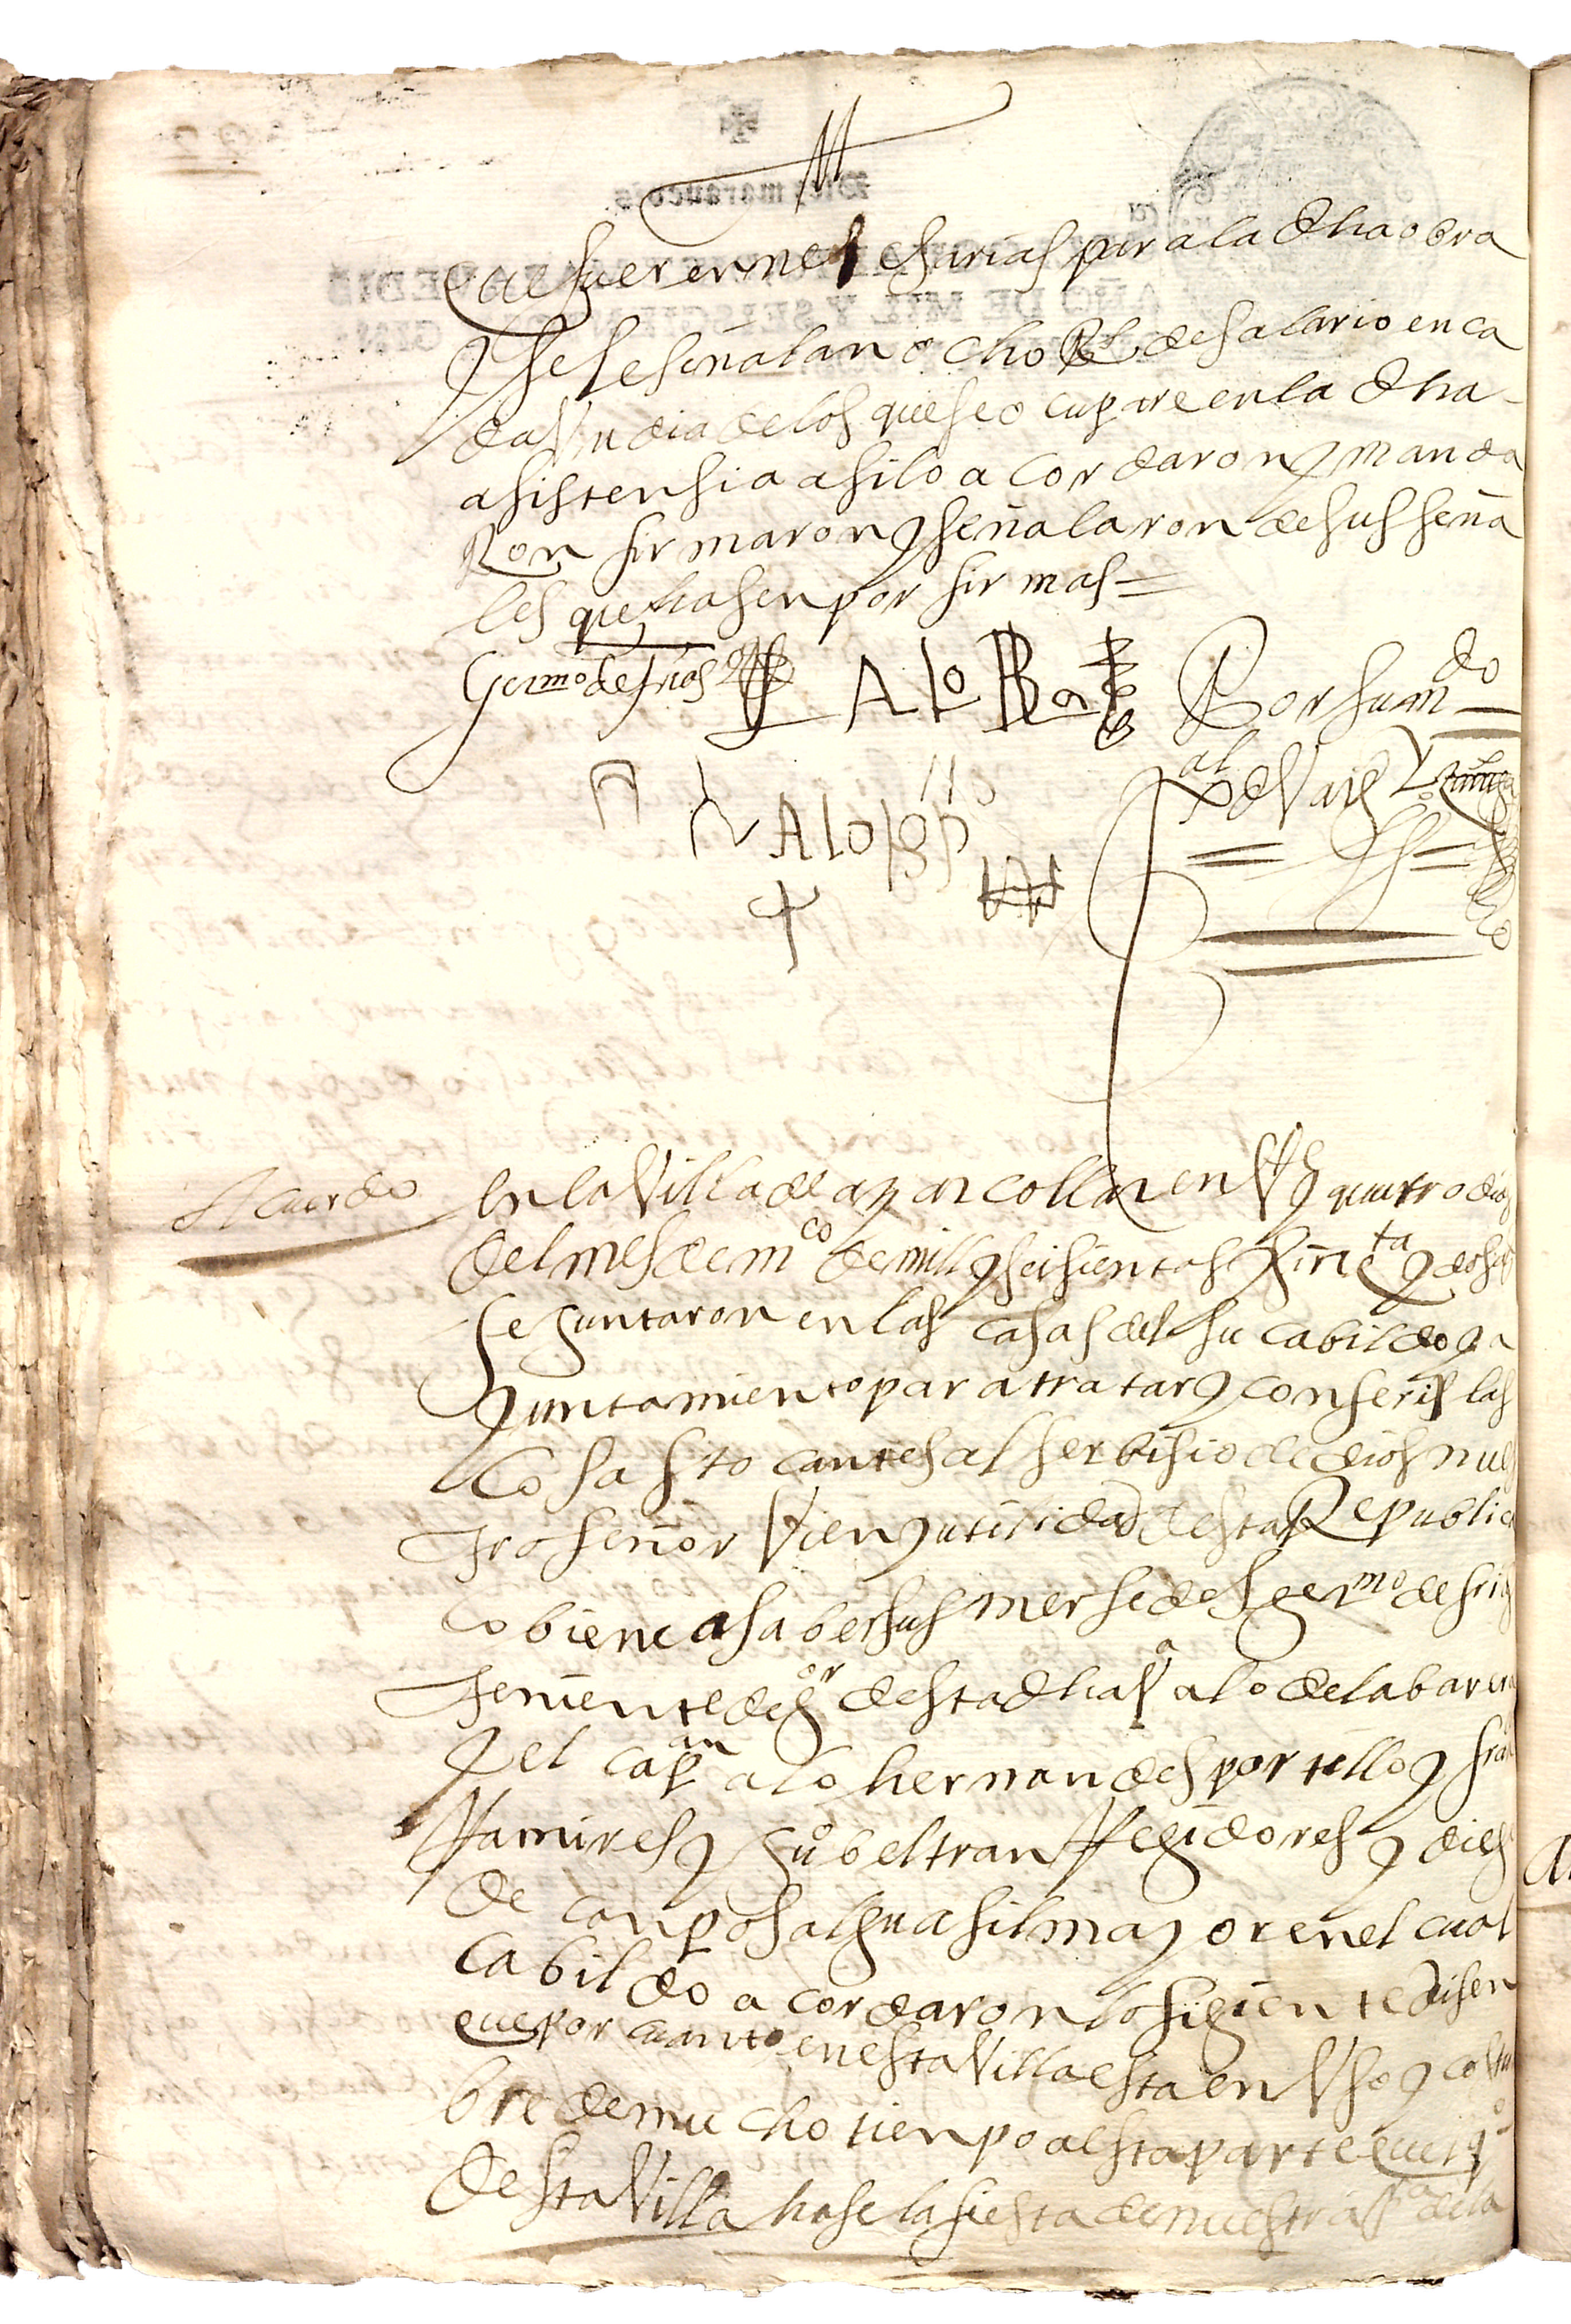 que fueren nesesarias para la dha obra
y se le señalan ocho Rs de salario en ca
da Un dia de los que se ocupare en la dha
asistensia asi lo acordaron y manda
Ron firmaron y señalaron de sus seña
les que hasen por firmas =
Germo de frias
Alo Ba
Por su mdo
Acuerdo
en la Villa de aznarcollar en Vte y quatro dias
del mes de mco de mill y seisientos y sinqta y dos as
se juntaron en las casas del su cabildo y a
yuntamiento para tratar y conferir las
cosas tocantes al serbisio de dios nues
tro señor Vien y utilidad desta Republica
co biene a saber sus mersedes germo de frias
teniente de gor desta dha Va alo de la barera
y el capan alo hernandes portillo y fran
Ramires y juo beltran Regidores y dieg
de canpos alguasil mayor en el cual
cabildo acordaron lo sigiente disen
que por cuanto en esta Villa esta en Vso y costu
bre de mucho tienpo a esta parte que el qo
desta Villa hase la fiesta de nuestra Sa de la